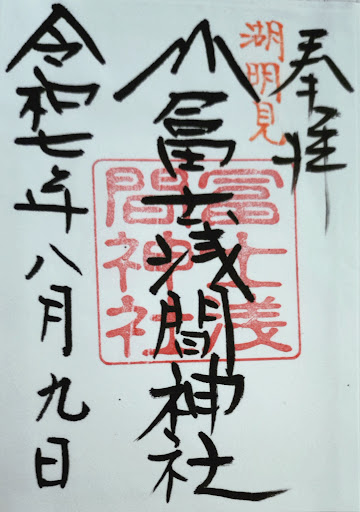 奉拝
湖明見
冨士浅間神社
富士浅
間神社
令和七年八月九日